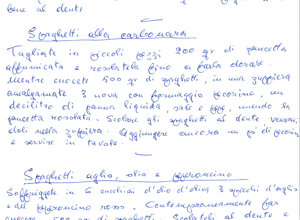 bene al dente
Spaghetti alla carbonara
Tagliate in piccoli pezzi 200 gr di pancetta
affumicata e rosolatela fino a farla dorare.
Mentre cuocete 500 gr di spaghetti, in una zuppiera
amalgamate 3 uova con formaggio pecorino, un
decilitro di panna liquida, sale e pepe, unendo la
pancetta rosolata. Scolare gli spaghetti al dente, versan
doli nella zuppiera. Aggiungere ancora un po' di pecorino
e servire in tavola.
Spaghetti aglio, olio e peperoncino
Soffriggete in 6 cucchiai d'olio d'oliva 3 spicchi d'aglio
e del peperoncino rosso. Contemporaneamente far
cuocere 500 gr di spaghetti. Scolateli al dente e